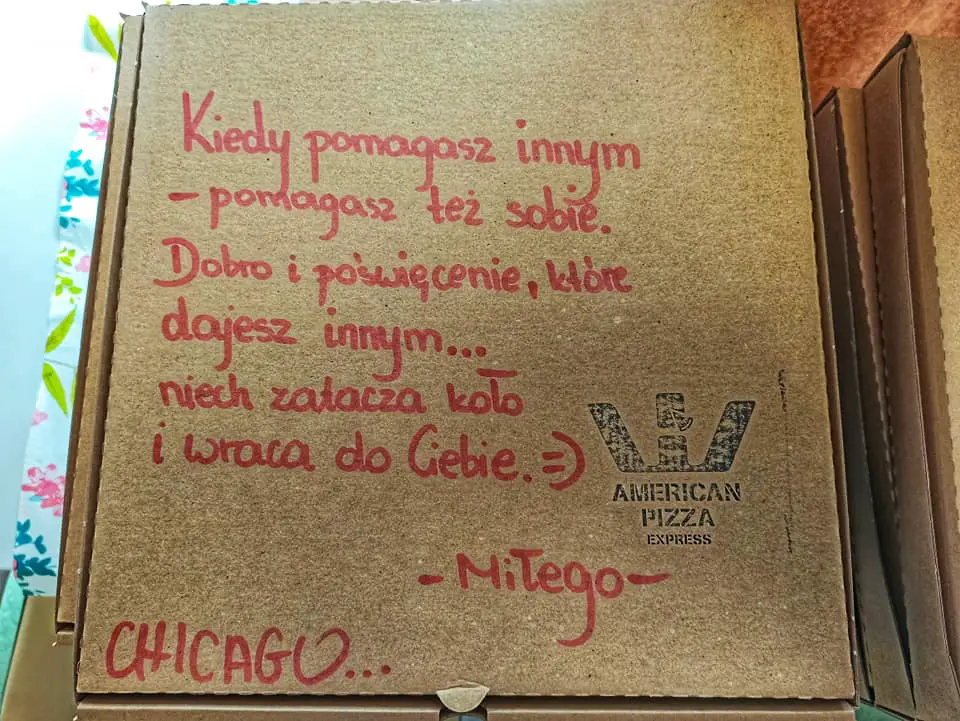 Kiedy pomagasz innym
- pomagasz też sobie.
Dobro i poświęcenie, które
dajesz innym...
niech zatacza koło
i wraca do Ciebie. =)
AMERICAN
PIZZA
EXPRESS
- Miłego -
CHICAGO...